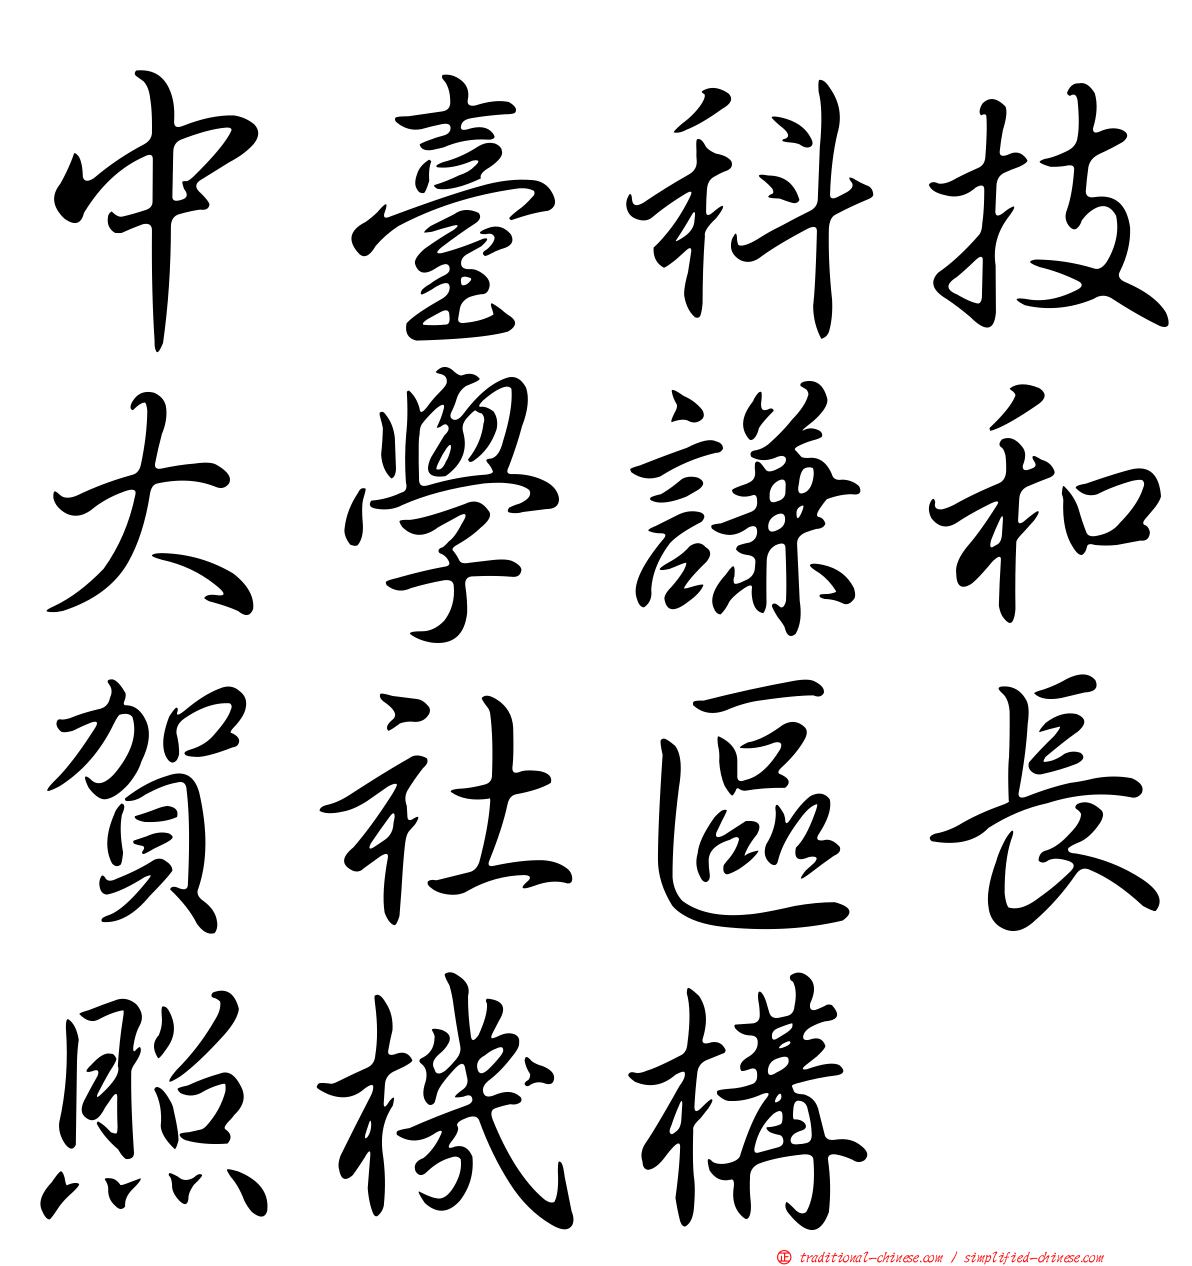 中臺科技
大學謙和
賀社區長
照機構
正 traditional-chinese.com / simplified-chinese.com